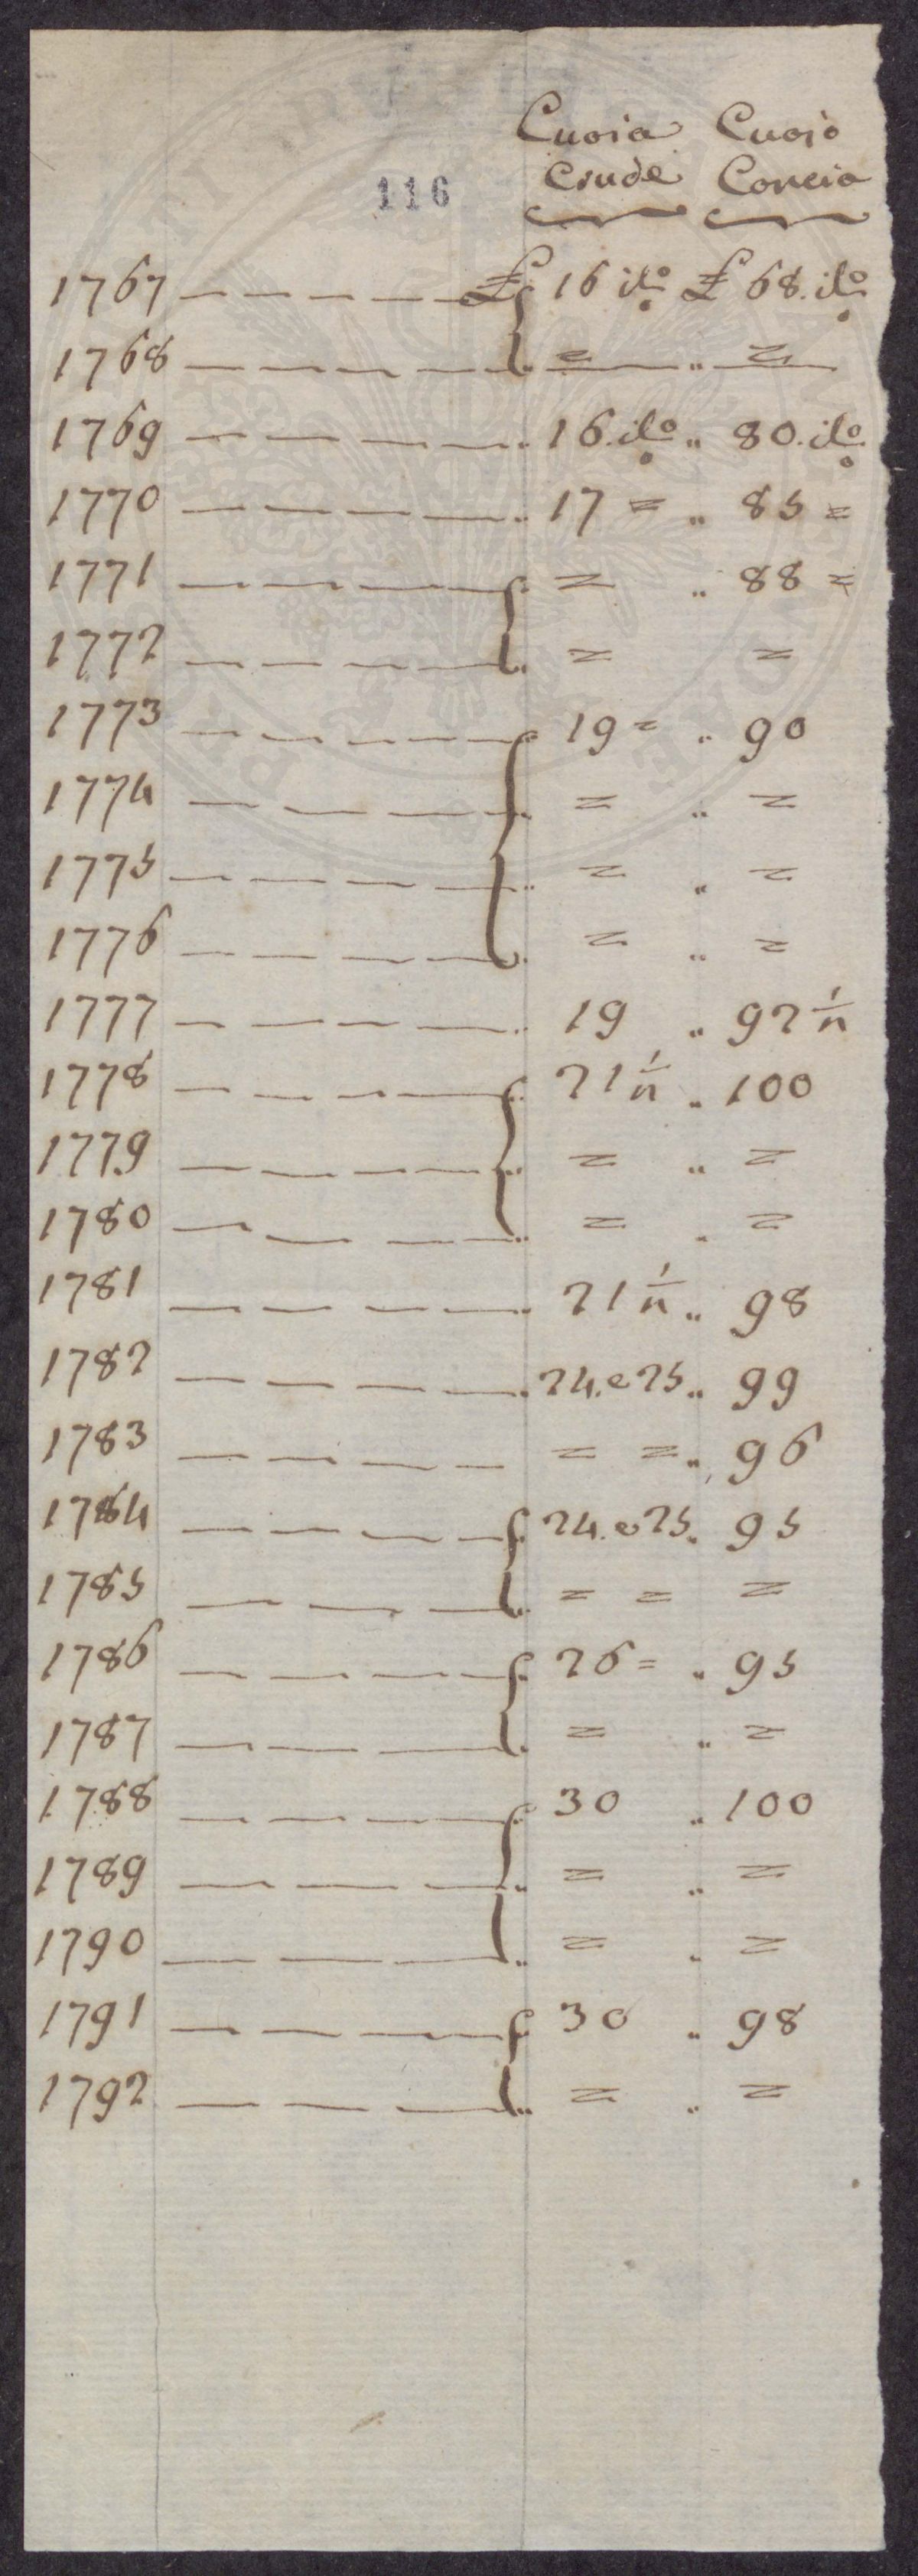 Cuoia Cuojo
Crude Concio
116
1767 — — — — £ 16 il.º £ 68. il.º
1768 — — — — „ = „ =
1769 — — — — „ 16. il.º „ 80. il.º
1770 — — — — „ 17 = „ 85 =
1771 — — — — „ = „ 88 =
1772 — — — — „ = =
1773 — — — — 19 = „ 90
1774 — — — „ = „ =
1775 — — — — „ = „ =
1776 — — — — „ = „ =
1777 — — — — „ 19 „ 92 1/2
1778 — — — — „ 21 1/2 „ 100
1779 — — — — „ = „ =
1780 — — — — „ = „ =
1781 — — — — „ 21 1/2 „ 98
1782 — — — — „ 24. e 25 „ 99
1783 — — — — — = = „ 96
1784 — — — — 24. e 25 „ 95
1785 — — — „ = = =
1786 — — — — „ 26 = „ 95
1787 — — — „ = „ =
1788 — — — — „ 30 „ 100
1789 — — — „ = „ =
1790 — — — „ = „ =
1791 — — — „ 30 „ 98
1792 — — — „ = „ =